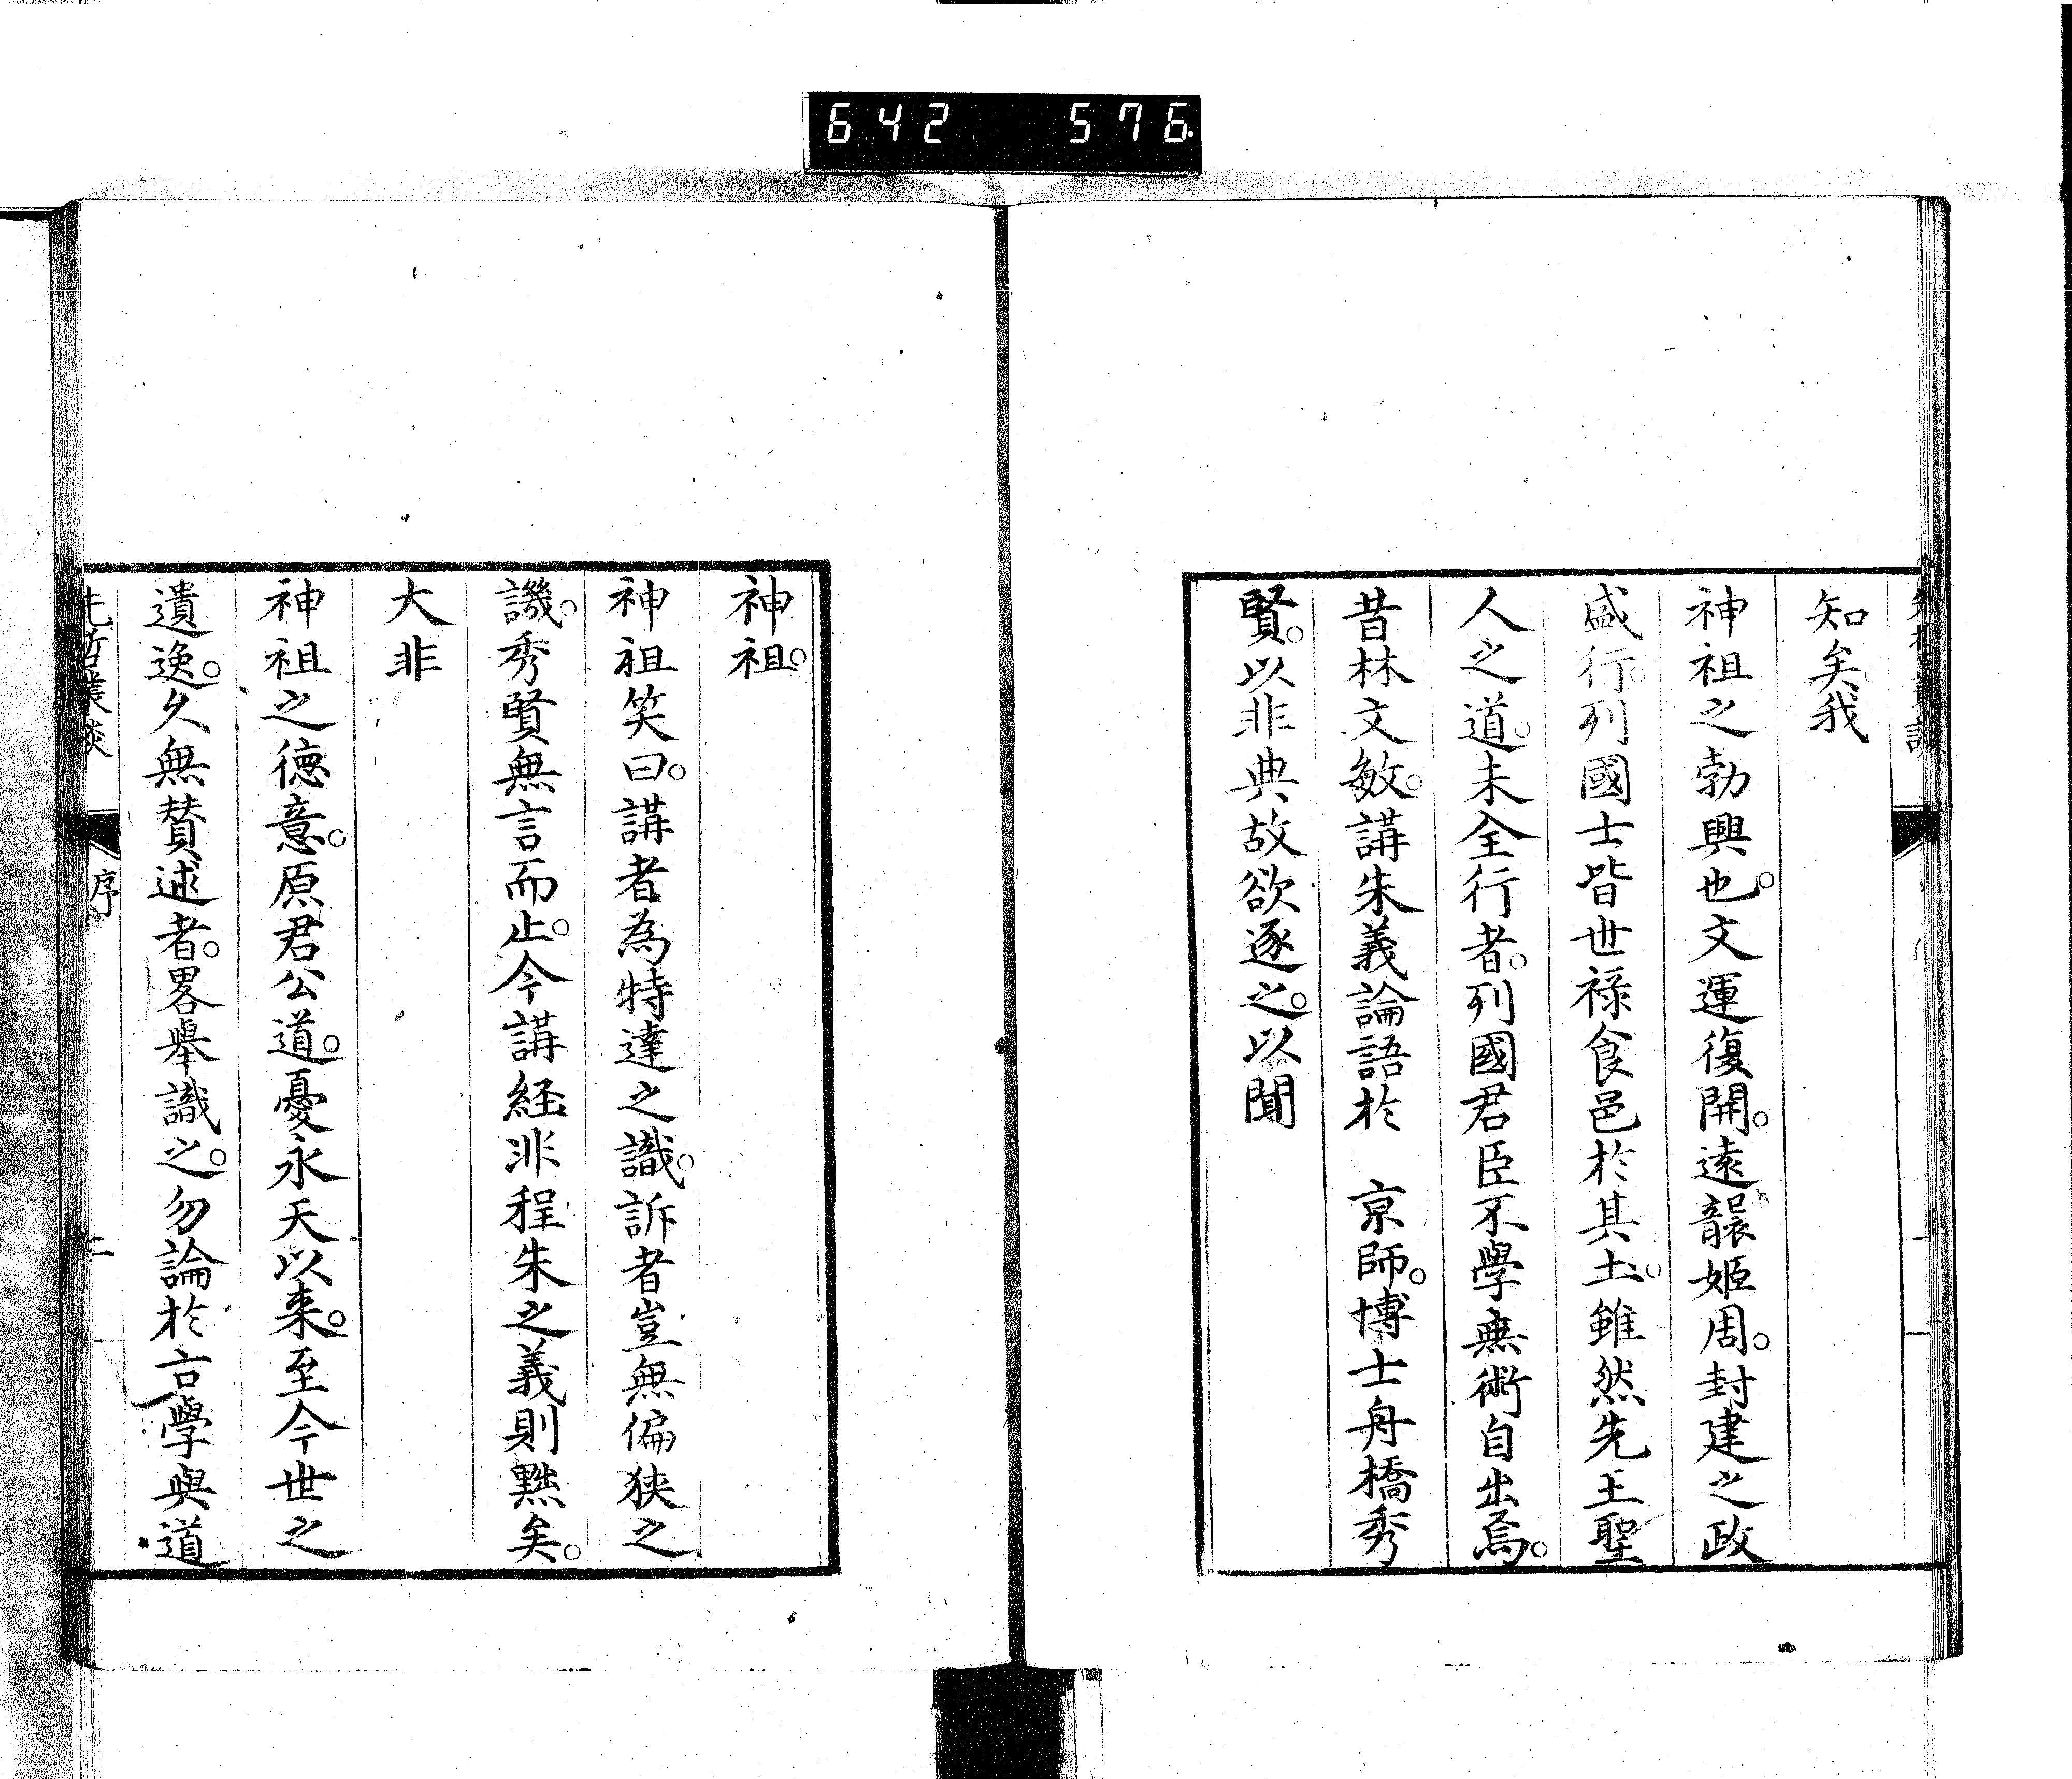 642 576
知矣我
神祖之勃興也。文運復開。遠襲姬周。封建之政
盛行。列國士皆世祿食邑於其土。雖然先王聖
人之道。未全行者。列國君臣不學無術自出焉。
昔林文敏。講朱義論語於 京師。博士舟橋秀
賢。以非典故欲逐之。以聞
神祖。
神祖笑曰。講者為特達之識。訴者豈無偏狹之
譏。秀賢無言而止。今講経非程朱之義則黙矣。
大非
神祖之德意。原君公道。憂永天以来。至今世之
遺逸。久無賛述者。畧舉識之。勿論於言學與道
先哲叢談 序 二